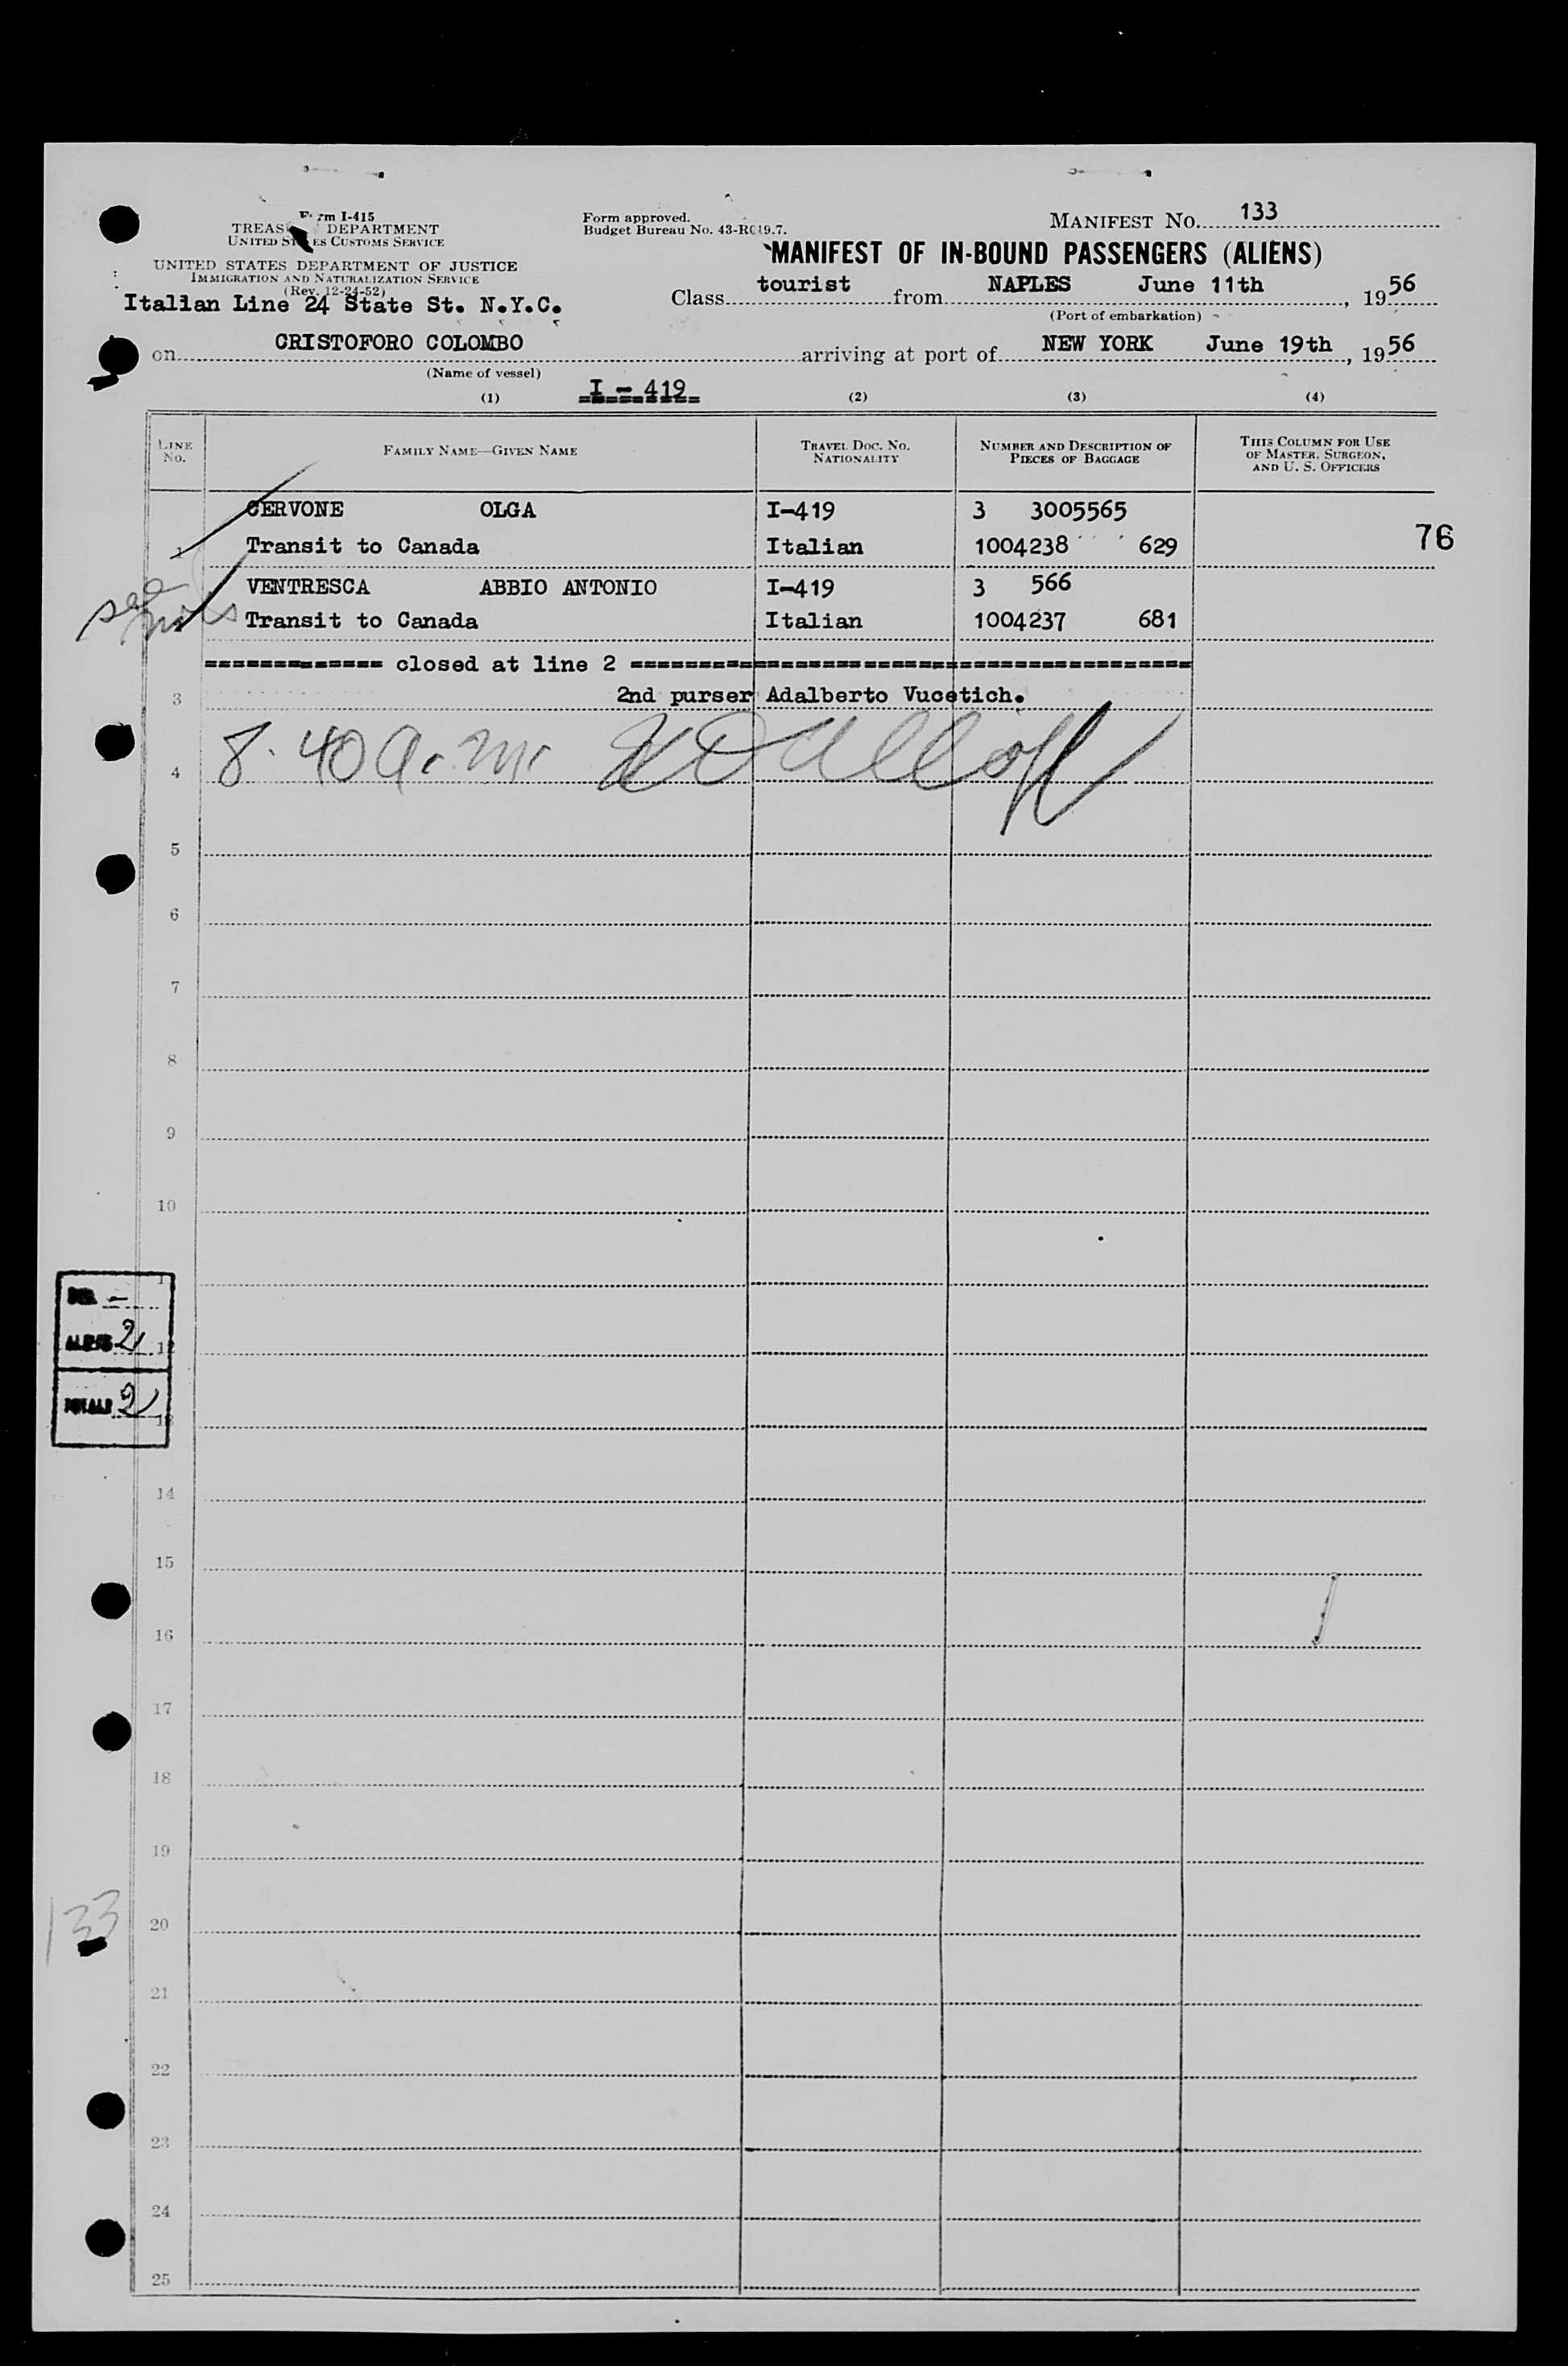 Form I-415
TREASURY DEPARTMENT
UNITED STATES CUSTOMS SERVICE
UNITED STATES DEPARTMENT OF JUSTICE
IMMIGRATION AND NATURALIZATION SERVICE
(Rev. 12-24-52)
Italian Line 24 State St. N.Y.C.
Form approved.
Budget Bureau No. 43-R019.7.
MANIFEST NO. 133
MANIFEST OF IN-BOUND PASSENGERS (ALIENS)
Class tourist from NAPLES June 11th, 1956
(Port of embarkation)
on CRISTOFORO COLOMBO arriving at port of NEW YORK June 19th, 1956
(Name of vessel)
I - 419
(1) (2) (3) (4)
LINE NO. FAMILY NAME—GIVEN NAME TRAVEL DOC. NO. NATIONALITY NUMBER AND DESCRIPTION OF PIECES OF BAGGAGE THIS COLUMN FOR USE OF MASTER, SURGEON, AND U. S. OFFICERS
CERVONE OLGA I-419 3 3005565
1 Transit to Canada Italian 1004238 629 76
see
VENTRESCA ABBIO ANTONIO I-419 3 566
Transit to Canada Italian 1004237 681
============= closed at line 2 =========================================
3 2nd purser Adalberto Vucetich.
4 8.40 a.m.
5
6
7
8
9
10
11
12
13
ALIENS 2
TOTALS 2
14
15
16
17
18
19
133
20
21
22
23
24
25